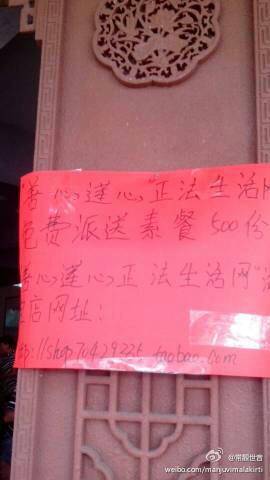 善心莲心正法生活网
免费派送素餐500份
善心莲心正法生活网
店网址:
http://shop70429225.taobao.com
@常靓世音
weibo.com/manjuvimalakirti